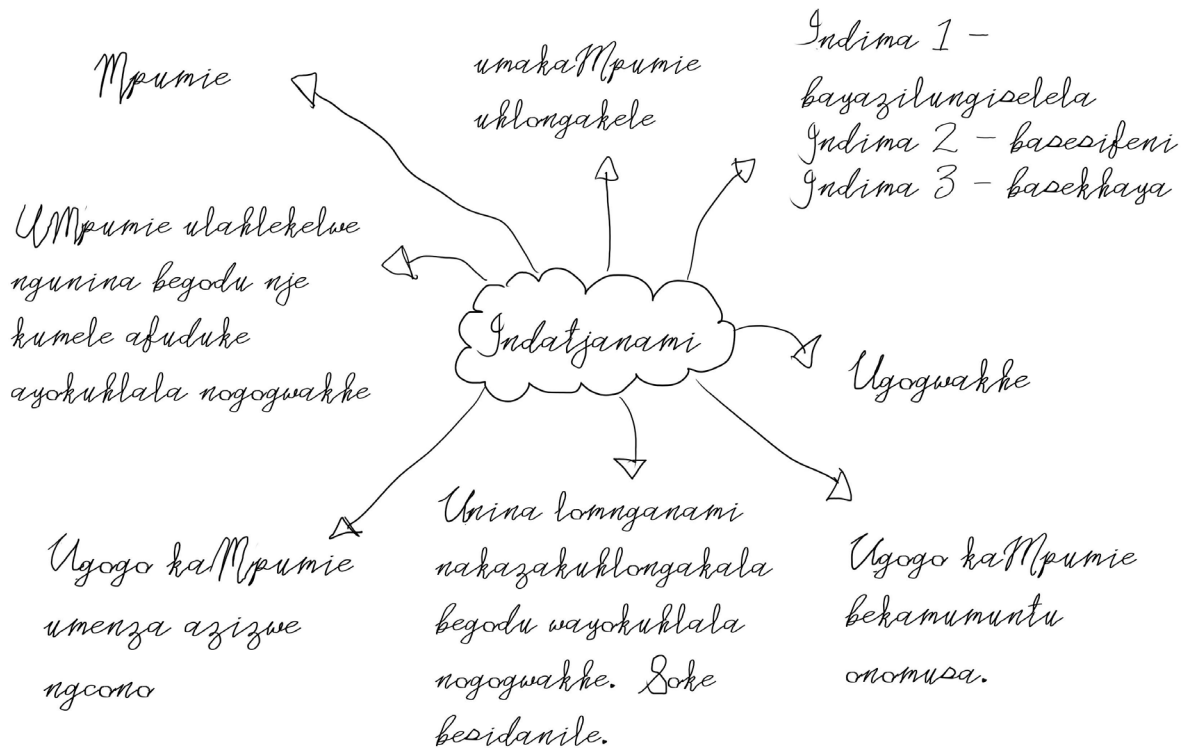 Mpumie
umakaMpumie
uhlongakele
Indima 1 –
bayazilungiselela
Indima 2 – basesifeni
Indima 3 – basekhaya
UMpumie ulahlekelwe
ngunina begodu nje
kumele afuduke
ayokuhlala nogogwakhe
Indatjanami
Ugogwakhe
Ugogo kaMpumie
umenza azizwe
ngcono
Unina lomnganami
nakazakuhlongakala
begodu wayokuhlala
nogogwakhe. Soke
besidanile.
Ugogo kaMpumie
bekamumuntu
onomusa.